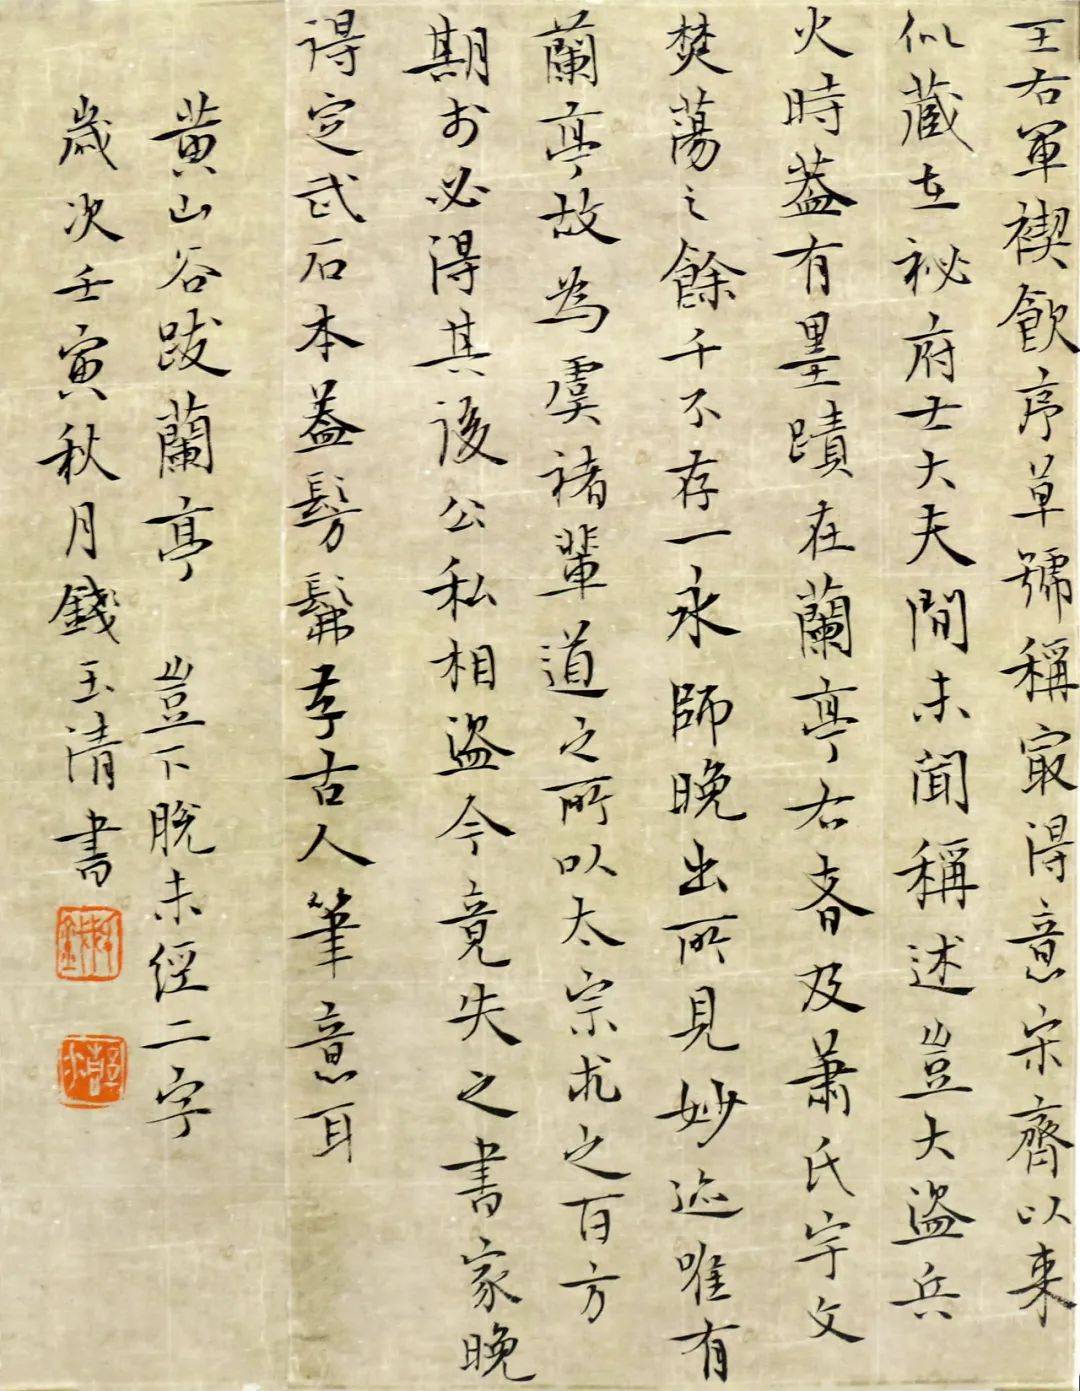 王右軍禊飲序草號稱冣得意宋齊以来
似藏在祕府士大夫間未聞稱述豈大盜兵
火時葢有墨蹟在蘭亭右者及蕭氏宇文
焚蕩之餘千不存一永師晚出所見妙迹唯有
蘭亭故為虞褚輩道之所以太宗求之百方
期於必得其後公私相盜今竟失之書家晚
得定武石本葢髣髴存古人筆意耳
黄山谷跋蘭亭 豈下脫未經二字
歲次壬寅秋月錢玉清書